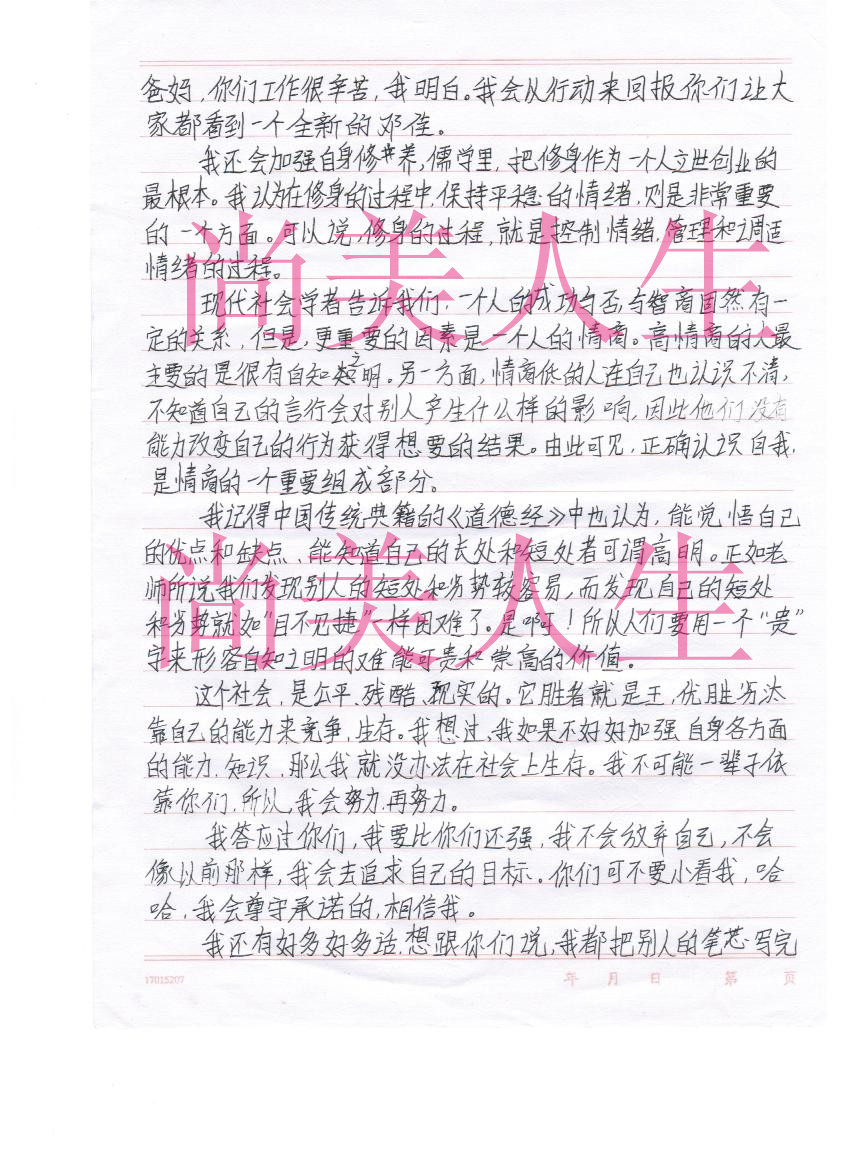 爸妈，你们工作很辛苦，我明白。我会从行动来回报你们让大
家都看到一个全新的邓佳。
我还会加强自身修养，儒学里，把修身作为一个人立世创业的
最根本。我认为在修身的过程中，保持平稳的情绪，则是非常重要
的一个方面。可以说，修身的过程，就是控制情绪，管理和调适
情绪的过程。
尚美人生
现代社会学者告诉我们，一个人的成功与否，与智商固然有一
定的关系，但是，更重要的因素是一个人的情商。高情商的人最
主要的是很有自知之明。另一方面，情商低的人连自己也认识不清，
不知道自己的言行会对别人产生什么样的影响，因此他们没有
能力改变自己的行为获得想要的结果。由此可见，正确认识自我，
是情商的一个重要组成部分。
我记得中国传统典籍的《道德经》中也认为，能觉悟自己
的优点和缺点、能知道自己的长处和短处者可谓高明。正如老
师所说我们发现别人的短处和劣势较容易，而发现自己的短处
和劣势就如“目不见捷”一样困难了。是啊！所以人们要用一个“贵”
字来形容自知之明的难能可贵和崇高的价值。
尚美人生
这个社会，是公平、残酷、现实的。它胜者就是王，优胜劣汰
靠自己的能力来竞争，生存。我想过，我如果不好好加强自身各方面
的能力，知识，那么我就没办法在社会上生存。我不可能一辈子依
靠你们，所以，我会努力，再努力。
我答应过你们，我要比你们还强，我不会放弃自己，不会
像以前那样，我会去追求自己的目标。你们可不要小看我，哈
哈，我会尊守承诺的，相信我。
我还有好多好多话，想跟你们说，我都把别人的笔芯写完
17015207
年 月 日 第 页